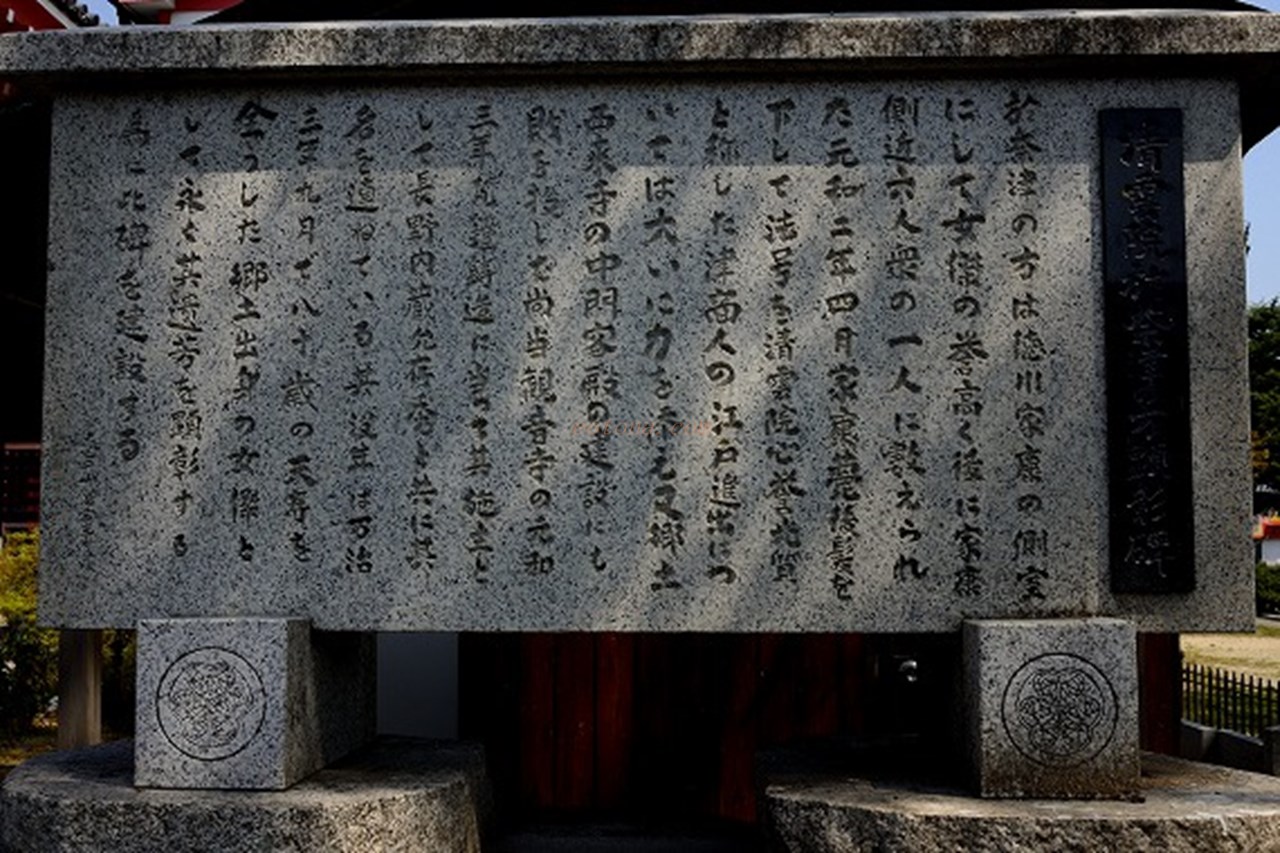 於奈津の方は徳川家康の側室
にして女傑の誉高く後に家康
側近六人衆の一人に数えられ
た元和二年四月家康薨後髪を
下して法号を清雲院心誉
と称した津商人の江戸進出につ
いては大いに力を添え又郷土
西来寺の中門客殿の建設にも
財を投じ尚当観音寺の元和
三年梵鐘鋳造に当って其施主と
して長野内蔵允存秀と共に其
名を連ねている其没年は万治
三年九月で八十歳の天寿を
全うした郷土出身の女傑と
して永く其遺芳を顕彰する
為この碑を建設する